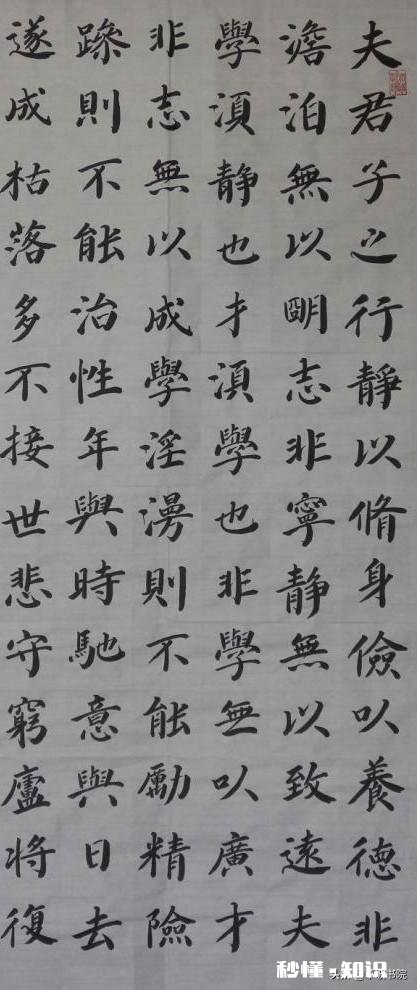 夫君子之行靜以脩身儉以養德非
澹泊無以眀志非寧静無以致遠夫
學湏静也才湏學也非學無以廣才
非志無以成學淫漫則不能勵精險
躁則不能治性年與時馳意與日去
遂成枯落多不接世悲守窮廬將復
秒懂·知识
书院